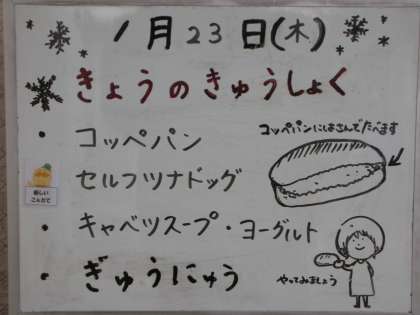 1月23日(木)
きょうのきゅうしょく
・コッペパン
コッペパンにはさんでたべます
・セルフツナドッグ
・キャベツスープ・ヨーグルト
・ぎゅうにゅう
やってみましょう